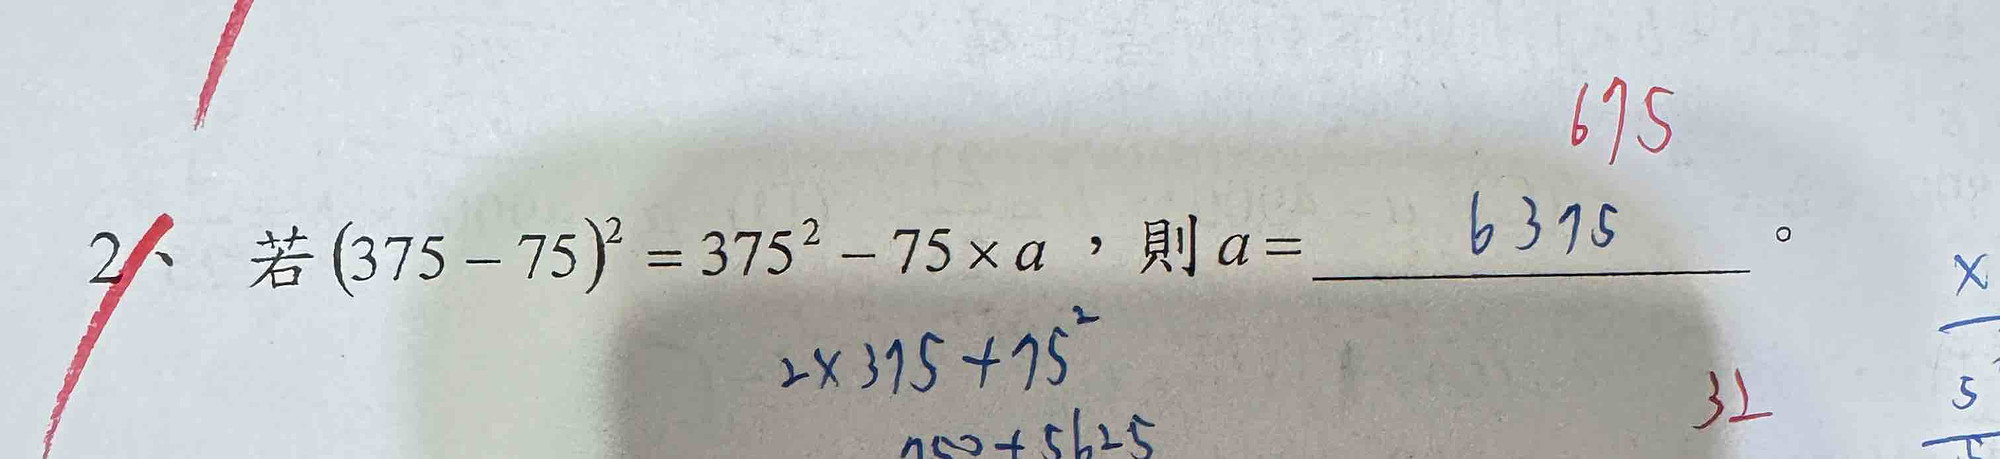 675
2、 若(375－75)²＝375²－75×a，則a＝6375。
2×375+75²
31
750+5625
×
5